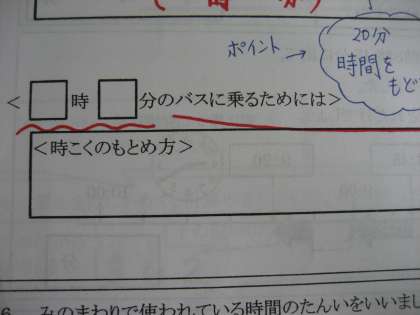 20分
ポイント → 時間を
もど
<□時□分のバスに乗るためには>
<時こくのもとめ方>
6 みのまわりで使われている時間のたんいをいいまし